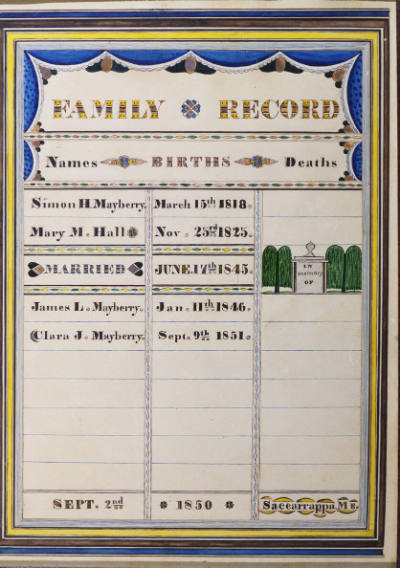 FAMILY RECORD
Names BIRTHS Deaths
Simon H. Mayberry. March 15th 1818.
Mary M. Hall Nov. 23rd 1825.
MARRIED JUNE. 17th 1845.
IN
memory
OF
James L. Mayberry. Jan. 11th 1846.
Clara J. Mayberry. Sept. 9th 1851.
SEPT. 2nd 1850 Saccarrappa ME.